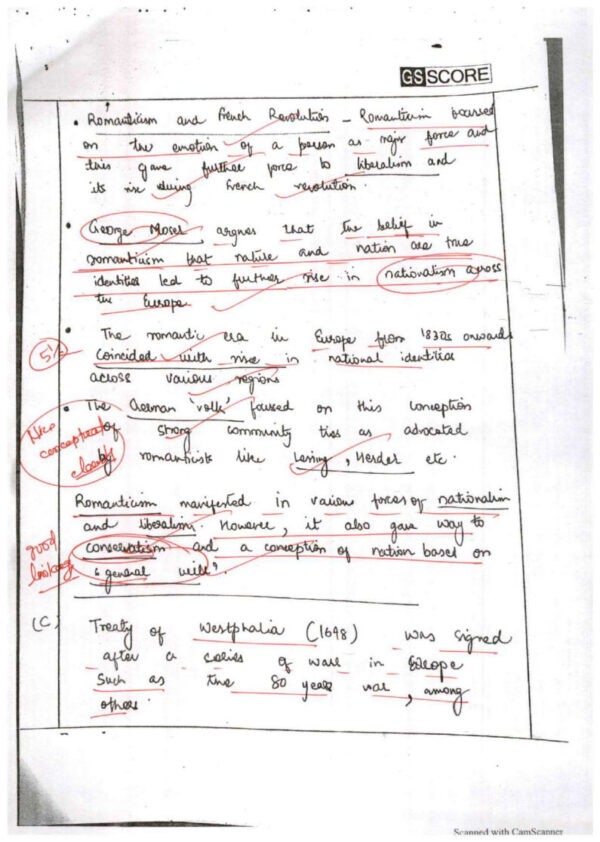 GSSCORE
• Romanticism and French Revolution - Romanticism focussed
on the emotion of a person as major force and
this gave further force to liberalism and
its rise during French revolution.
• George Mosel argues that the belief in
romanticism that nature and nation are true
identities led to further rise in nationalism across
the Europe.
• The romantic era in Europe from '1830s onwards
5½
coincided with rise in national identities
across various regions
• The German 'volk' focused on this conception
of strong community ties as advocated
by romanticists like Lessing, Herder etc.
conceptual
clarity
Romanticism manifested in various forces of nationalism
and liberalism. However, it also gave way to
conservatism and a conception of nation based on
"general will".
good
linkage
(C) Treaty of Westphalia (1648) was signed
after a series of wars in Europe
such as the 80 years war, among
others.
Scanned with CamScanner